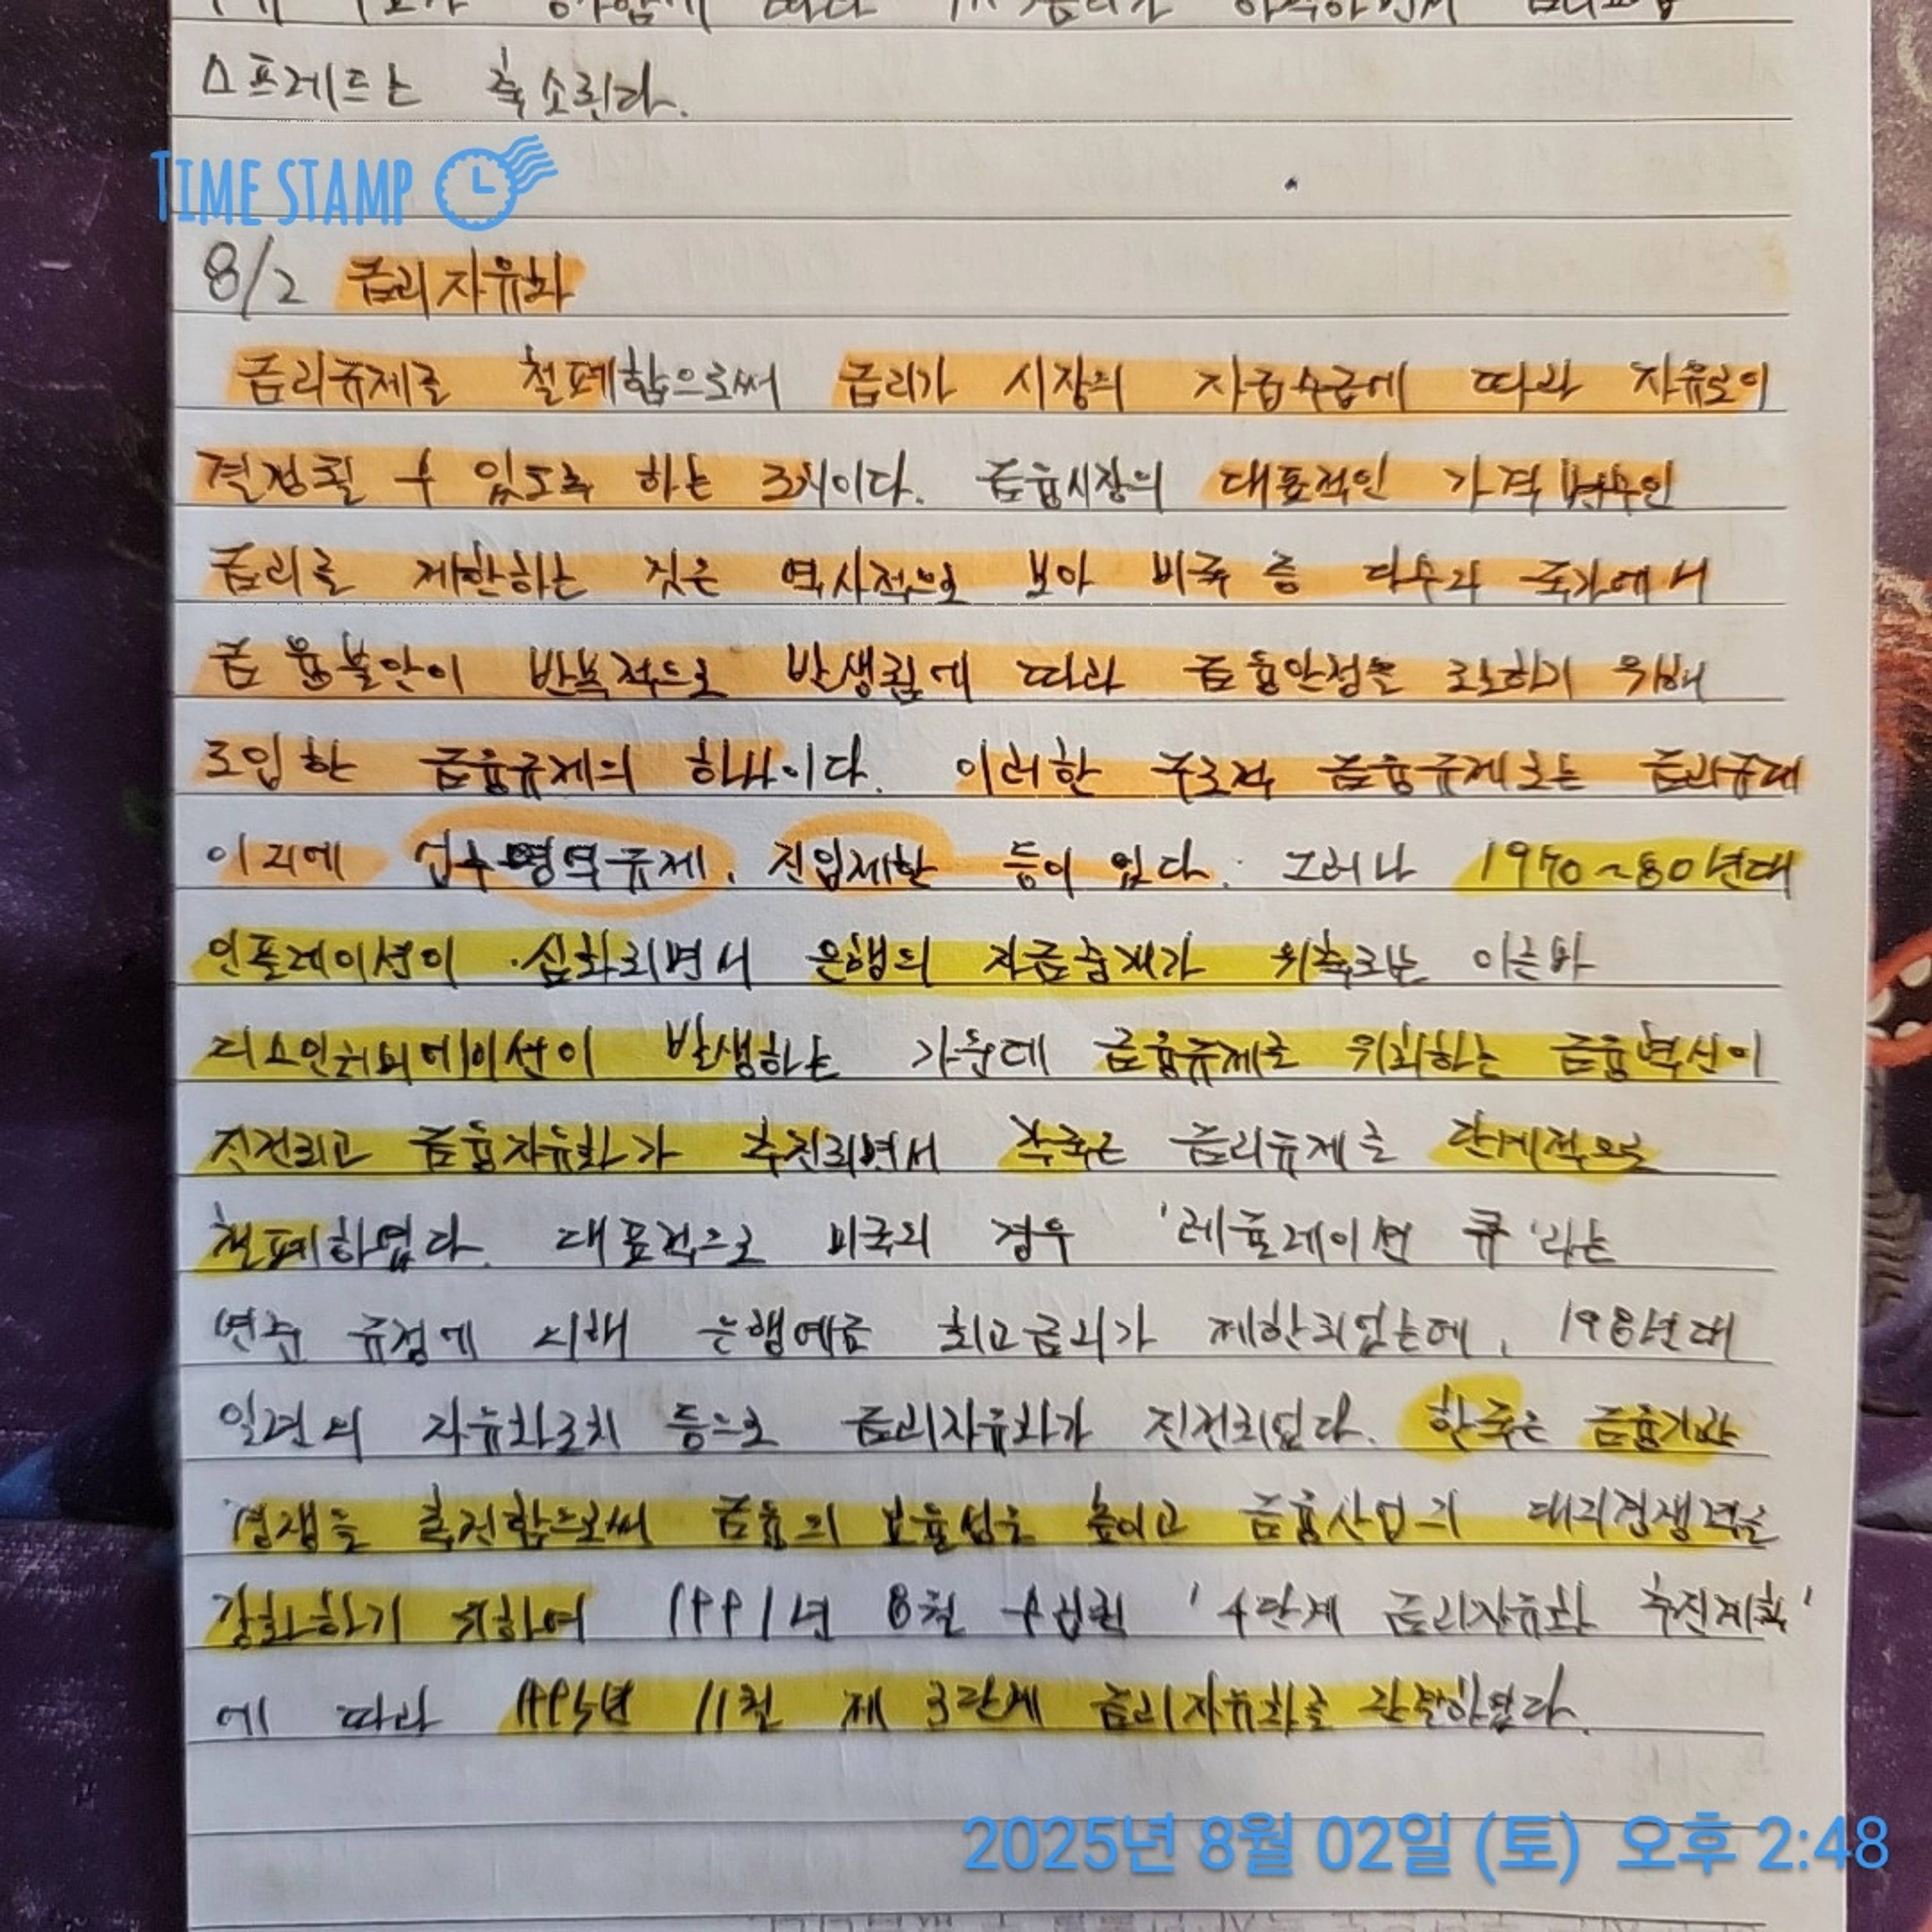 스프레드는 축소된다.
TIME STAMP
8/2 금리자유화
금리규제를 철폐함으로써 금리가 시장의 자금수급에 따라 자유로이
결정될 수 있도록 하는 조치이다. 금융시장의 대표적인 가격변수인
금리를 제한하는 것은 역사적으로 보아 미국 등 다수의 국가에서
금융불안이 반복적으로 발생됨에 따라 금융안정을 도모하기 위해
도입한 금융규제의 하나이다. 이러한 구조적 금융규제로는 금리규제
이외에 업무영역규제, 진입제한 등이 있다. 그러나 1970~80년대
인플레이션이 심화되면서 은행의 자금중개가 위축되는 이른바
디스인터미데이션이 발생하는 가운데 금융규제를 위회하는 금융혁신이
진전되고 금융자유화가 추진되면서 각국은 금리규제를 단계적으로
철폐하였다. 대표적으로 미국의 경우 '레귤레이션 큐'라는
연준 규정에 의해 은행예금 최고금리가 제한되었는데, 198년대
일련의 자유화조치 등으로 금리자유화가 진전되었다. 한국은 금융기관
경쟁을 촉진함으로써 금융의 효율성을 높이고 금융산업의 대외경쟁력을
강화하기 위하여 1991년 8월 수립된 '4단계 금리자유화 추진계획'
에 따라 1995년 11월 제 3단계 금리자유화를 완료하였다.
2025년 8월 02일 (토) 오후 2:48